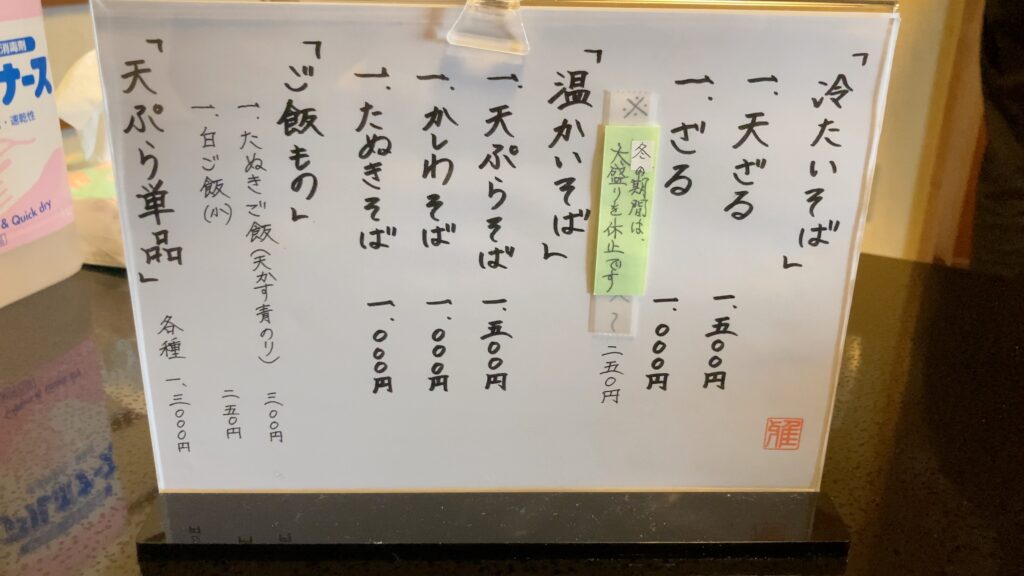 「冷たいそば」
一、天ざる 一、五〇〇円
一、ざる 一、〇〇〇円
※
冬の期間は、
大盛りを休止です
二五〇円
「温かいそば」
一、天ぷらそば 一、五〇〇円
一、かしわそば 一、〇〇〇円
一、たぬきそば 一、〇〇〇円
「ご飯もの」
一、たぬきご飯(天かす青のり) 三〇〇円
一、白ご飯(小) 二五〇円
「天ぷら単品」
各種 一、三〇〇〇円
消毒剤
ナース
・速乾性
& Quick dry
雅